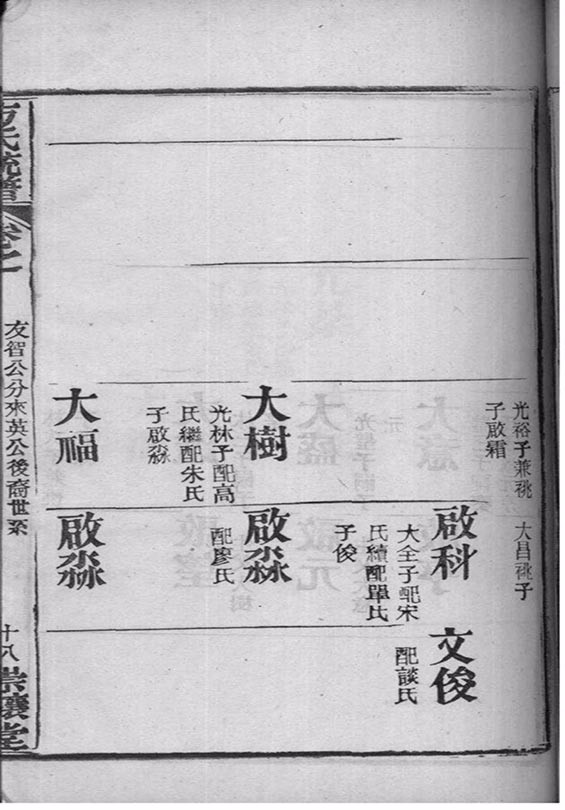 光裕子兼祧
子啟霜
大樹
光林子配高
氏繼配朱氏
子啟淼
大福
大昌祧子
啟科
大全子配宋
氏續配單氏
子俊
啟淼
配廖氏
啟淼
文俊
配談氏
氏統譜
卷之
友智公分來英公後裔世系
十八
崇讓堂